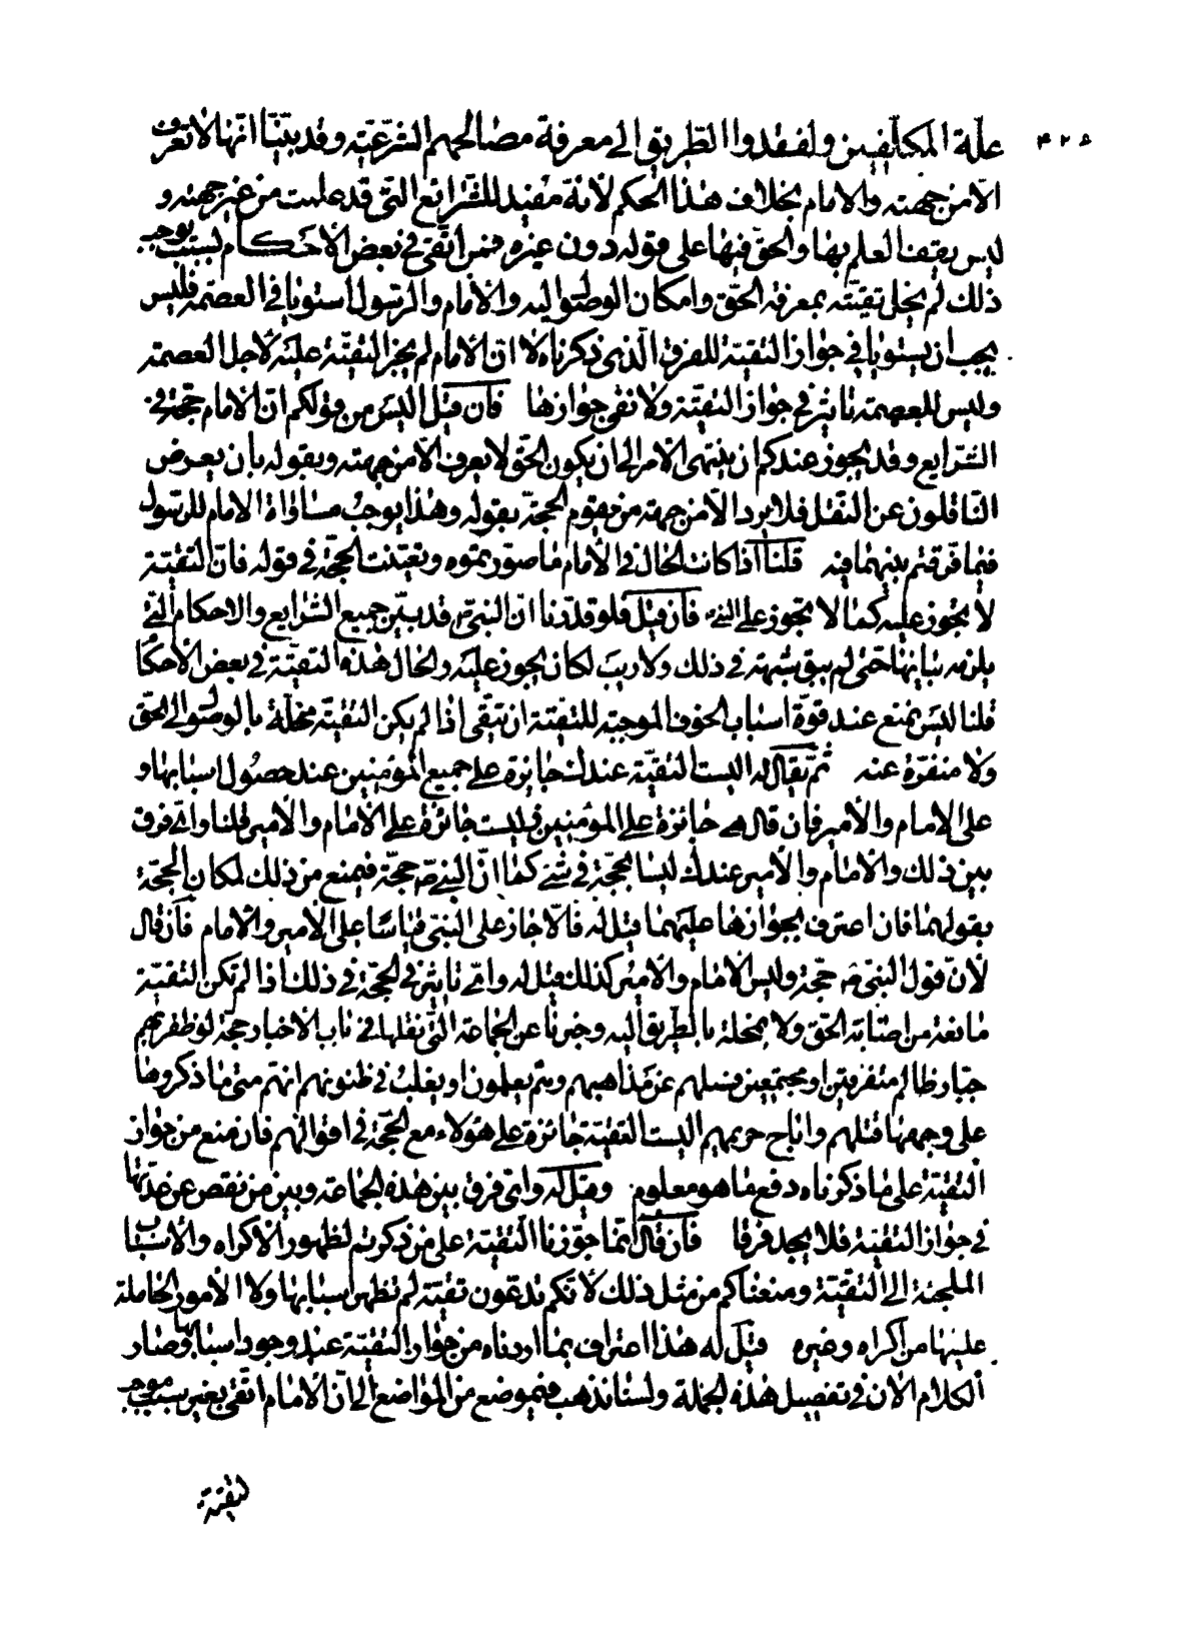 ٤٢٨
علة المكلفين ولفقدوا الطريق الى معرفة مصالحهم الشرعية وقد بيّنّا انها لا تعرف
الا من جهته والامام بخلاف هذا الحكم لانه مفيد للشرائع التى قد علمت من غير جهته و
ليس يقف العلم بها والحق فيها على قوله دون غيره فمن اتقى فى بعض الاحكام لسبب يوجب
ذلك لم يخل تقيته بمعرفة الحق وامكان الوصول اليه والامام والرسول استويا فى العصمة فليس
يجب ان يستويا فى جواز التقية للفرق الذى ذكرناه لا ان الامام لم يجز التقية عليه لاجل العصمة
وليس للعصمة تاثير فى جواز التقية ولا نفى جوازها فان قيل اليس من قولكم ان الامام حجة فى
الشرايع وقد يجوز عندكم ان ينتهى الامر الى ان يكون الحق لا يعرف الا من جهته وبقوله بان يعرض
الناقلون عن النقل فلا يرد الا من جهة من يقوم الحجة بقوله وهذا يوجب مساواة الامام للرسول
فيما فرقتم بينهما فيه قلنا اذا كانت الحال فى الامام ما صورتموه وتعينت الحجة فى قوله فان التقية
لا يجوز عليه كما لا تجوز على النبى فان قيل فلو قدرنا ان النبى قد بيّن جميع الشرايع والاحكام التى
يلزمه بيانها حتى لم يبق شبهة فى ذلك ولا ريب لكان يجوز عليه والحال هذه التقية فى بعض الاحكا
قلنا ليس يمنع عند قوة اسباب الخوف الموجبة للتقية ان يتقى اذا لم يكن التقية مخلة بالوصول الى الحق
ولا منفرة عنه ثم يقال له اليست التقية عندك جايزة على جميع المؤمنين عند حصول اسبابها و
على الامام والامير فان قال هى جائزة على المؤمنين وليست جائزة على الامام والامير قلنا واى فرق
بين ذلك والامام والامير عندك ليسا بحجة فى شئ كما ان النبى ص حجة فيمنع من ذلك لمكان الحجة
بقولهما فان اعترف بجوازها عليهما قيل له فالا جاز على النبى قياسا على الامير والامام فان قال
لان قول النبى ص حجة وليس الامام والامير كذلك قيل له واى تاثير فى الحجة فى ذلك اذا لم تكن التقية
مانعة من اصابة الحق ولا بمخلة بالطريق اليه وخبرنا عن الجماعة التى نقلها فى باب الاخبار حجة لو ظفر بهم
جبار ظالم متفرقين او مجتمعين فسئلهم عن مذاهبهم وهم يعلمون او يغلب فى ظنونهم انهم متى ما ذكروها
على وجهها قتلهم واباح حريمهم اليست التقية جائزة على هؤلاء مع الحجة فى اقوالهم فان منع من جواز
التقية على ما ذكرناه دفع ما هو معلوم وقيل له واى فرق بين هذه الجماعة وبين من نقص عن عدتها
فى جواز التقية فلا يجد فرقا فان قال انما جوزنا التقية على من ذكرتم لظهور الاكراه والاسباب
الملجئة الى التقية ومنعناكم من مثل ذلك لانكم تدعون تقية لم تظهر اسبابها ولا الامور الحاملة
عليها من اكراه وغيره قيل له هذا اعتراف بما اردناه من جواز التقية عند وجود اسبابها وصار
الكلام الان فى تفصيل هذه الجملة ولسنا نذهب فى موضع من المواضع الى ان الامام اتقى بغير سبب موجب
لتقية